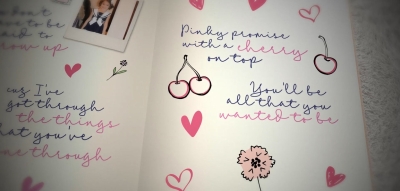 don't
have to be
aid to
row up
cus I've
got through
the things
hat you've
me through
Pinky promise
with a cherry
on top
You'll be
all that you
wanted to be